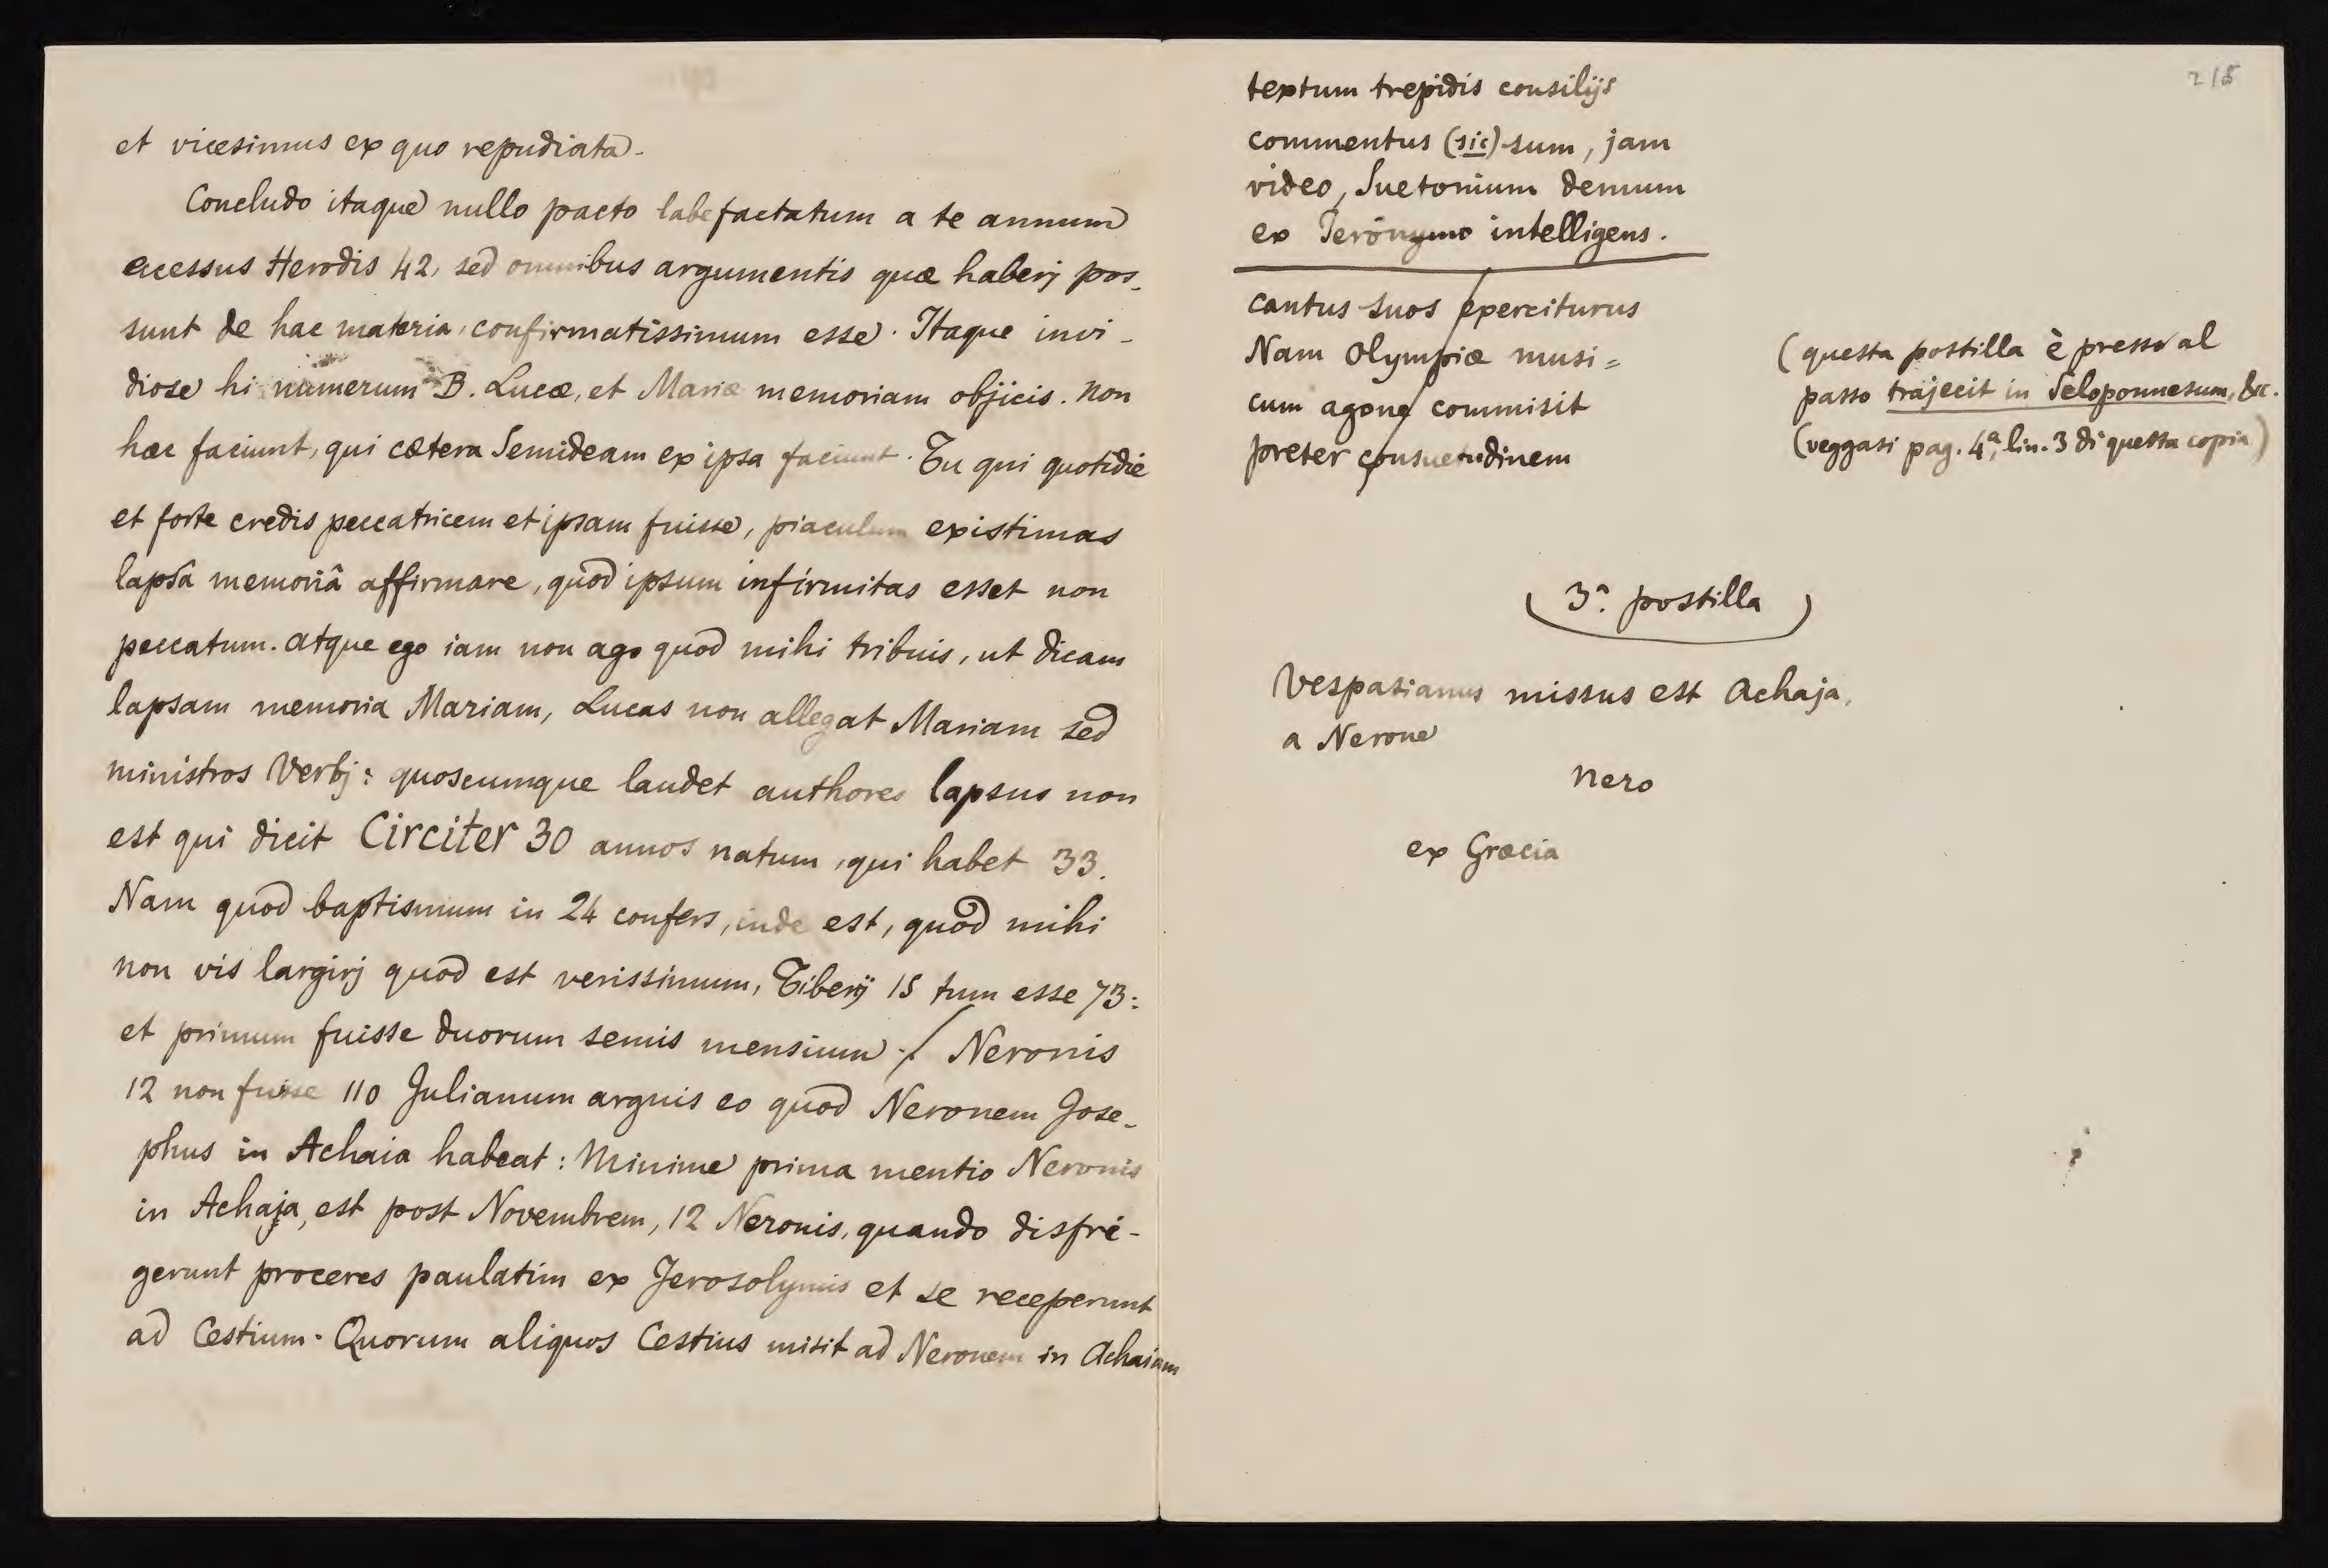 et vicesimus ex quo repudiata.
Concludo itaque nullo pacto labefactatum a te annum
ecessus Herodis 42, sed omnibus argumentis quæ haberj pos-
sunt de hac materia, confirmatissimum esse. Itaque invi-
diose hi numerum B. Lucæ, et Mariæ memoriam objicis. Non
hæc faciunt, qui cætera Semideam ex ipsa faciunt. Tu qui quotidie
et forte credis peccatricem et ipsam fuisse, piaculum existimas
lapsâ memoriâ affirmare, quod ipsum infirmitas esset non
peccatum. Atque ego iam non ago quod mihi tribuis, ut dicam
lapsam memoria Mariam, Lucas non allegat Mariam sed
ministros Verbj: quoscumque laudet authores lapsus non
est qui dicit Circiter 30 annos natum, qui habet 33.
Nam quod baptismum in 24 confers, inde est, quod mihi
non vis largirj quod est verissimum, Tiberij 15 tum esse 73:
et primum fuisse duorum semis mensium./ Neronis
12 non fuisse 110 Julianum arguis eo quod Neronem Jose-
phus in Achaia habeat: Minime prima mentio Neronis
in Achaja, est post Novembrem, 12 Neronis, quando disfri-
gerunt proceres paulatim ex Jerosolymis et se receperunt
ad Cestium. Quorum aliquos Cestius misit ad Neronem in Achaiam
215
textum trepidis consilijs
commentus (sic) sum, jam
video, Suetonium demum
ex Ieronymo intelligens.
cantus suos exerciturus
Nam Olympiæ musi=
cum agone commisit
preter consuetudinem
(questa postilla è presso al
passo trajecit in Peloponnesum, &c.
(veggasi pag. 4ª, lin. 3 di questa copia)
(3ª. postilla)
Vespasianus missus est Achaja,
a Nerone
Nero
ex Græcia